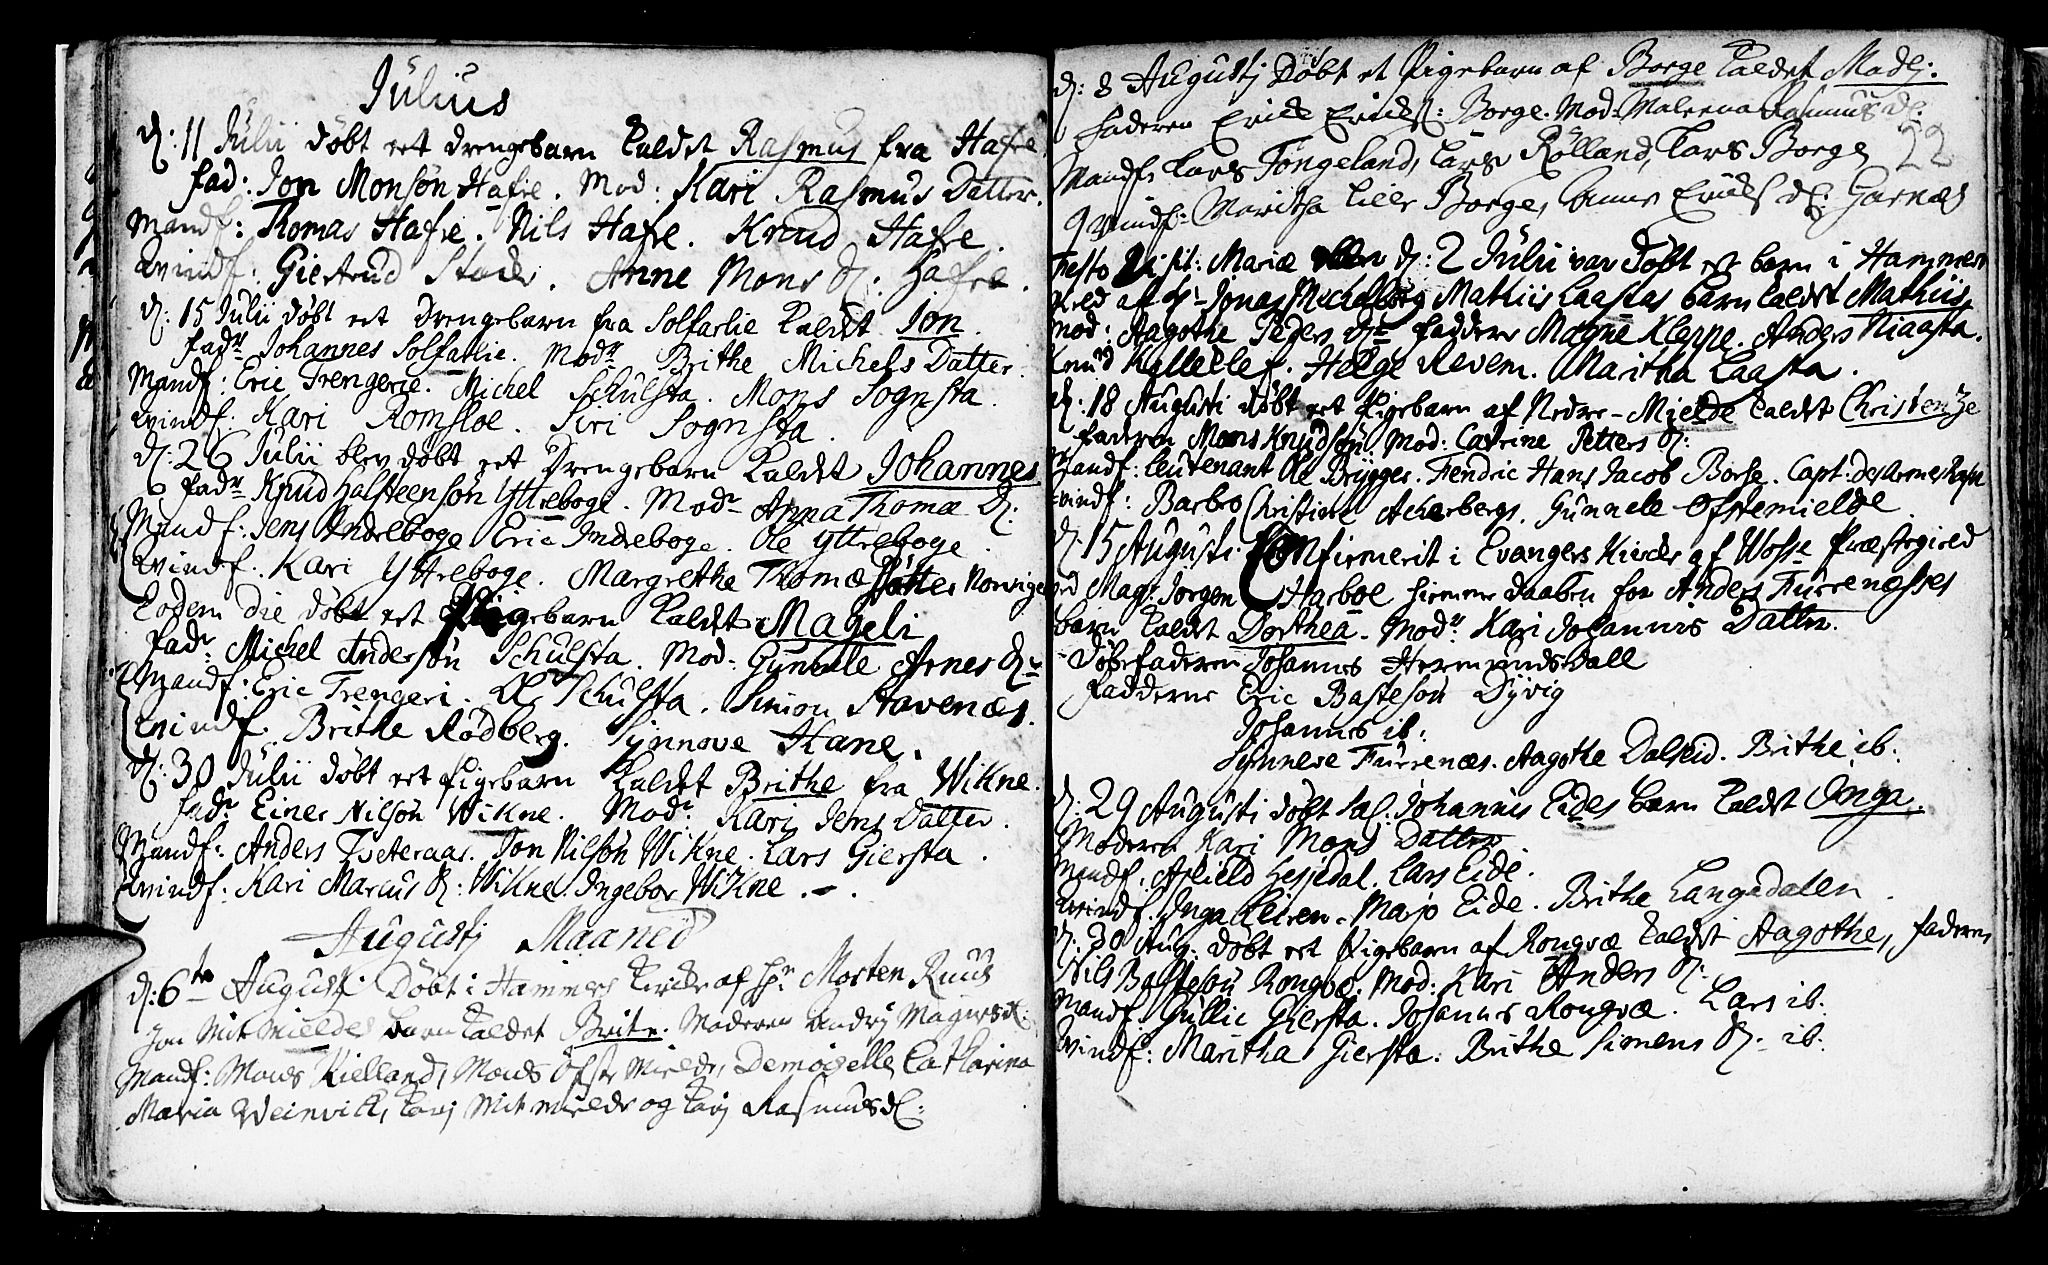 Julius
d: 11 Julii døbt eet drengebarn kaldet Rasmus fra Hafre
fad: Jon Monsøn Hafre. Mod: Kari Rasmus Datter.
Mandf: Thomas Hafre. Nils Hafre. Knud Hafre.
Kvindf: Giertrud. Anne Mons D: Hafre.
d: 15 Julii døbt eet drengebarn fra Solfarlie kaldet Jon.
Fadr Johannes Solfarlie. Modr Brithe Michels Datter.
Mandf: Eric Trengerie. Michel Schulsta. Mons Sognsta.
Kvindf: Kari Romsloe. Siri Sognsta.
d: 26 Julii blev døbt eet Drengebarn kaldet Johannes
Fadr Knud Halsteensøn Yttreboge. Modr Anna Thomæ D:
Mandf: Jens Indreboge Eric Indreboge. Ole Yttreboge.
Kvindf: Kari Yttreboge. Margrethe Thomæ Datter
Eodem die døbt eet Pigebarn kaldet Mageli
Fadr Michel Andersøn Schulsta. Mod: Gunnelle Arnes Dr
Mandf: Eric Trengeri. Ole Schulsta. Simon Stavenæs.
Kvindf. Brithe Rødberg. Synnove Hane.
d: 30 Julii døbt eet Pigebarn kaldet Brithe fra Wikne.
fadr Einer Nilsøn Wikne. Modr Kari Jens Datter.
Mandf: Anders Tveteraas. Jon Nilsøn Wikne. Lars Giersta.
Kvindf: Kari Marcus D: Wikne. Ingebor Wikne.
Augustj Maaned
d: 6te Augustj Døbt i Hammers kircke af Hr Morten Ruus
Jon Mit Mieldes barn kaldet Brite. Moderen Magnesd:
Mandf: Mons Kielland, Mons Øfste Mielde, Demoiselle Catharina
Maria Weinvich, Mit mielde og Rasmusd:
d: 8 Augustj Døbt et Pigebarn af Borge kaldet Madlj.
Faderen Erick Ericks: Borge. Mod: Rasmusd:
22
Mandf: Lars Tøngeland, Lars Rølland, Lars Borge
Qvindf: Maritha Lille Borge, Anne Ericks d: Garnæs
Festo Visit: Mariæ d: 2 Julii var Døbt et barn i Hammers
kircke af Hr Jonas Michelborg Mathiis Laastas barn kaldet Mathiis
Mod: Aagothe Peders Dr Faddere Magne Kleppe. Anders Niaasta.
Knud Helge Revem. Maritha Laasta.
d: 18 Augusti døbt eet Pigebarn af Nedre-Mielde kaldet Christenze
Faderen Mons Knudsøn. Mod: Catrine Petters D:
Mandf: Leutenant Ole Brygger. Fendric Hans Jacob Borse. Capt:
Kvindf: Barbro Christine Acherberg. Gunnele Øfstemielde
d. 15 Augusti Confirmerit i Evangers Kircke af Wosse Præstegield
ved Mag: Jørgen Harboe hiemme daaben for Anders Furrenæsses
barn kaldet Dorthea. Modr Kari Johannis Datter.
Døbefaderen Johannes Heremundsdall
Fadderne Eric Bastesøn Dyvig
Johannes ib:
Synneve Furrenæs. Aagothe Dalseid. Brithe ib:
d: 29 Augusti døbt Sal. Johannis Eides barn kaldet Inga.
Moderen Kari Mons Datter
Mandf: Askield Hessedal. Lars Eide.
Kvindf. Inga Leiren. Marjo Eide. Brithe Langedalen
d: 30 Aug: døbt eet Pigebarn af Rongvæ kaldet Aagothe, faderen
Nils Bastesøn Rongvæ. Mod: Kari Anders D:
Mandf: Gullic Giersta. Johannes Rongvæ. Lars ib:
Kvindf: Maritha Giersta. Brithe Simens D: ib: